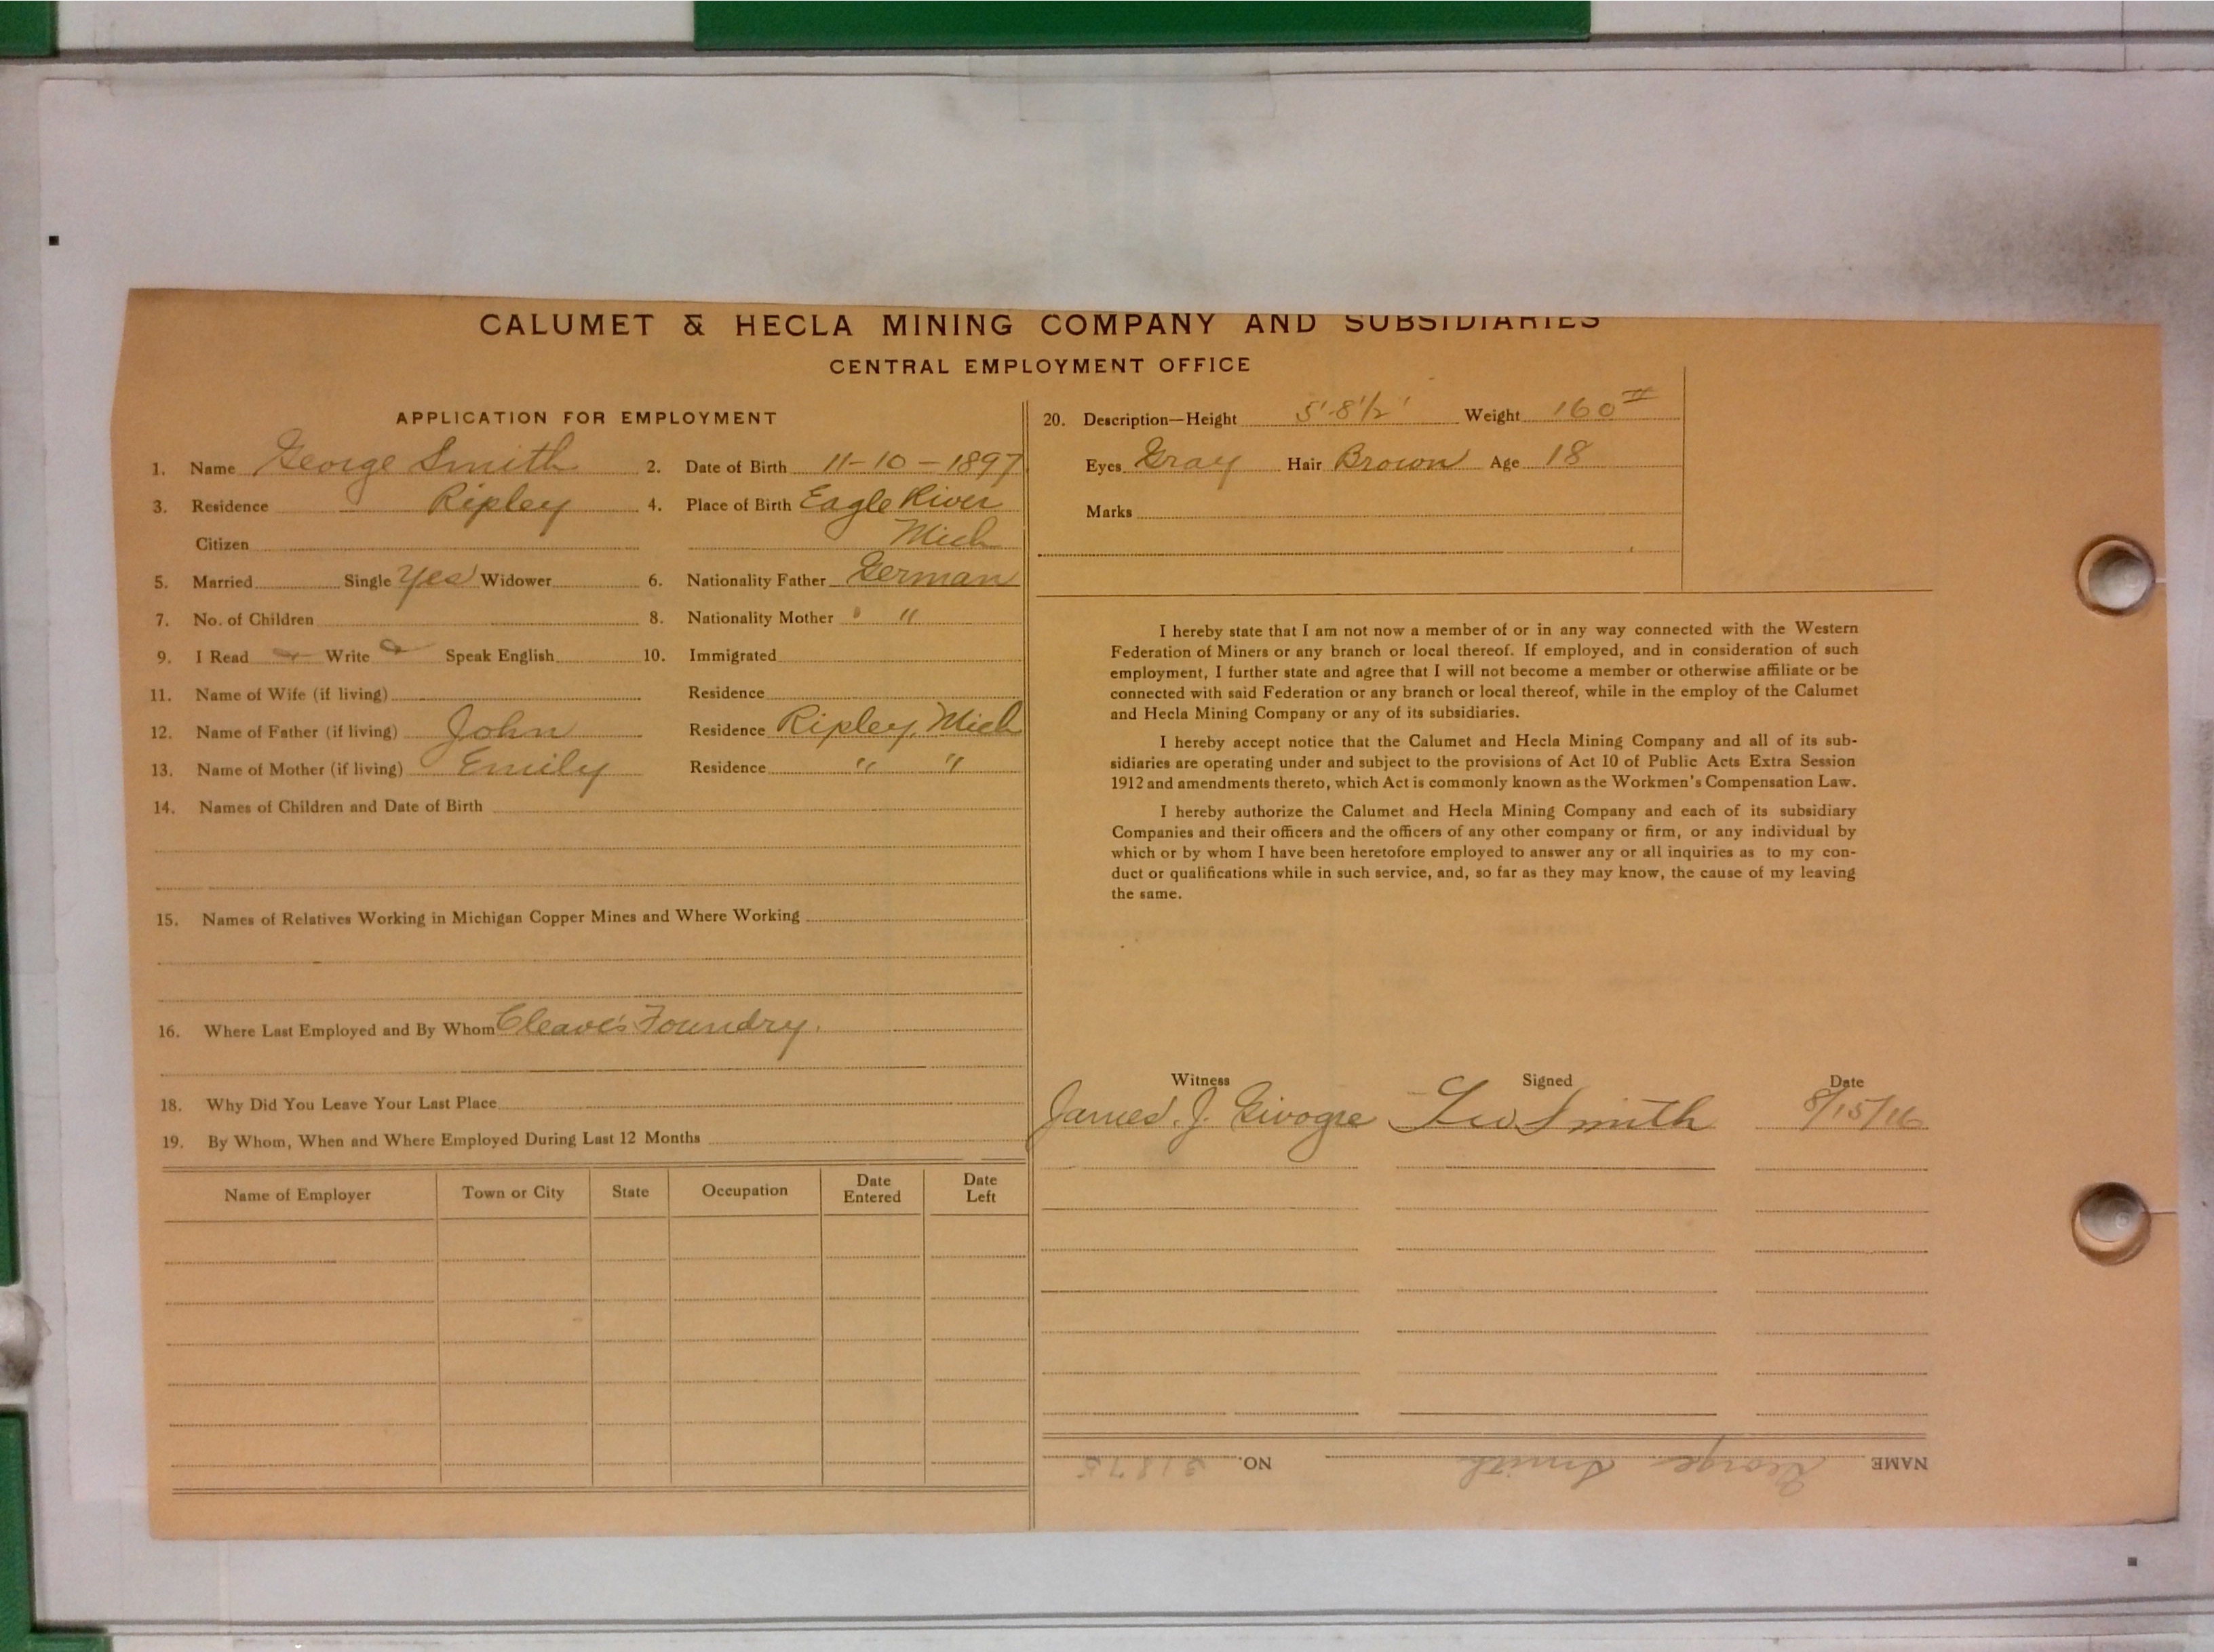 CALUMET & HECLA MINING COMPANY AND SUBSIDIARIES
CENTRAL EMPLOYMENT OFFICE
APPLICATION FOR EMPLOYMENT
1. Name George Smith 2. Date of Birth 11-10-1897
3. Residence Ripley 4. Place of Birth Eagle River
Citizen Mich
5. Married Single Yes Widower 6. Nationality Father German
7. No. of Children 8. Nationality Mother " "
9. I Read Write Speak English 10. Immigrated
11. Name of Wife (if living) Residence
12. Name of Father (if living) John Residence Ripley, Mich
13. Name of Mother (if living) Emily Residence " "
14. Names of Children and Date of Birth
15. Names of Relatives Working in Michigan Copper Mines and Where Working
16. Where Last Employed and By Whom Cleave's Foundry.
18. Why Did You Leave Your Last Place
19. By Whom, When and Where Employed During Last 12 Months
Name of Employer Town or City State Occupation Date Entered Date Left
20. Description—Height 5'-8½' Weight 160#
Eyes Gray Hair Brown Age 18
Marks
I hereby state that I am not now a member of or in any way connected with the Western
Federation of Miners or any branch or local thereof. If employed, and in consideration of such
employment, I further state and agree that I will not become a member or otherwise affiliate or be
connected with said Federation or any branch or local thereof, while in the employ of the Calumet
and Hecla Mining Company or any of its subsidiaries.
I hereby accept notice that the Calumet and Hecla Mining Company and all of its sub-
sidiaries are operating under and subject to the provisions of Act 10 of Public Acts Extra Session
1912 and amendments thereto, which Act is commonly known as the Workmen's Compensation Law.
I hereby authorize the Calumet and Hecla Mining Company and each of its subsidiary
Companies and their officers and the officers of any other company or firm, or any individual by
which or by whom I have been heretofore employed to answer any or all inquiries as to my con-
duct or qualifications while in such service, and, so far as they may know, the cause of my leaving
the same.
Witness Signed Date
James. J. Geo Smith 8/15/16
NAME George Smith NO. 31875